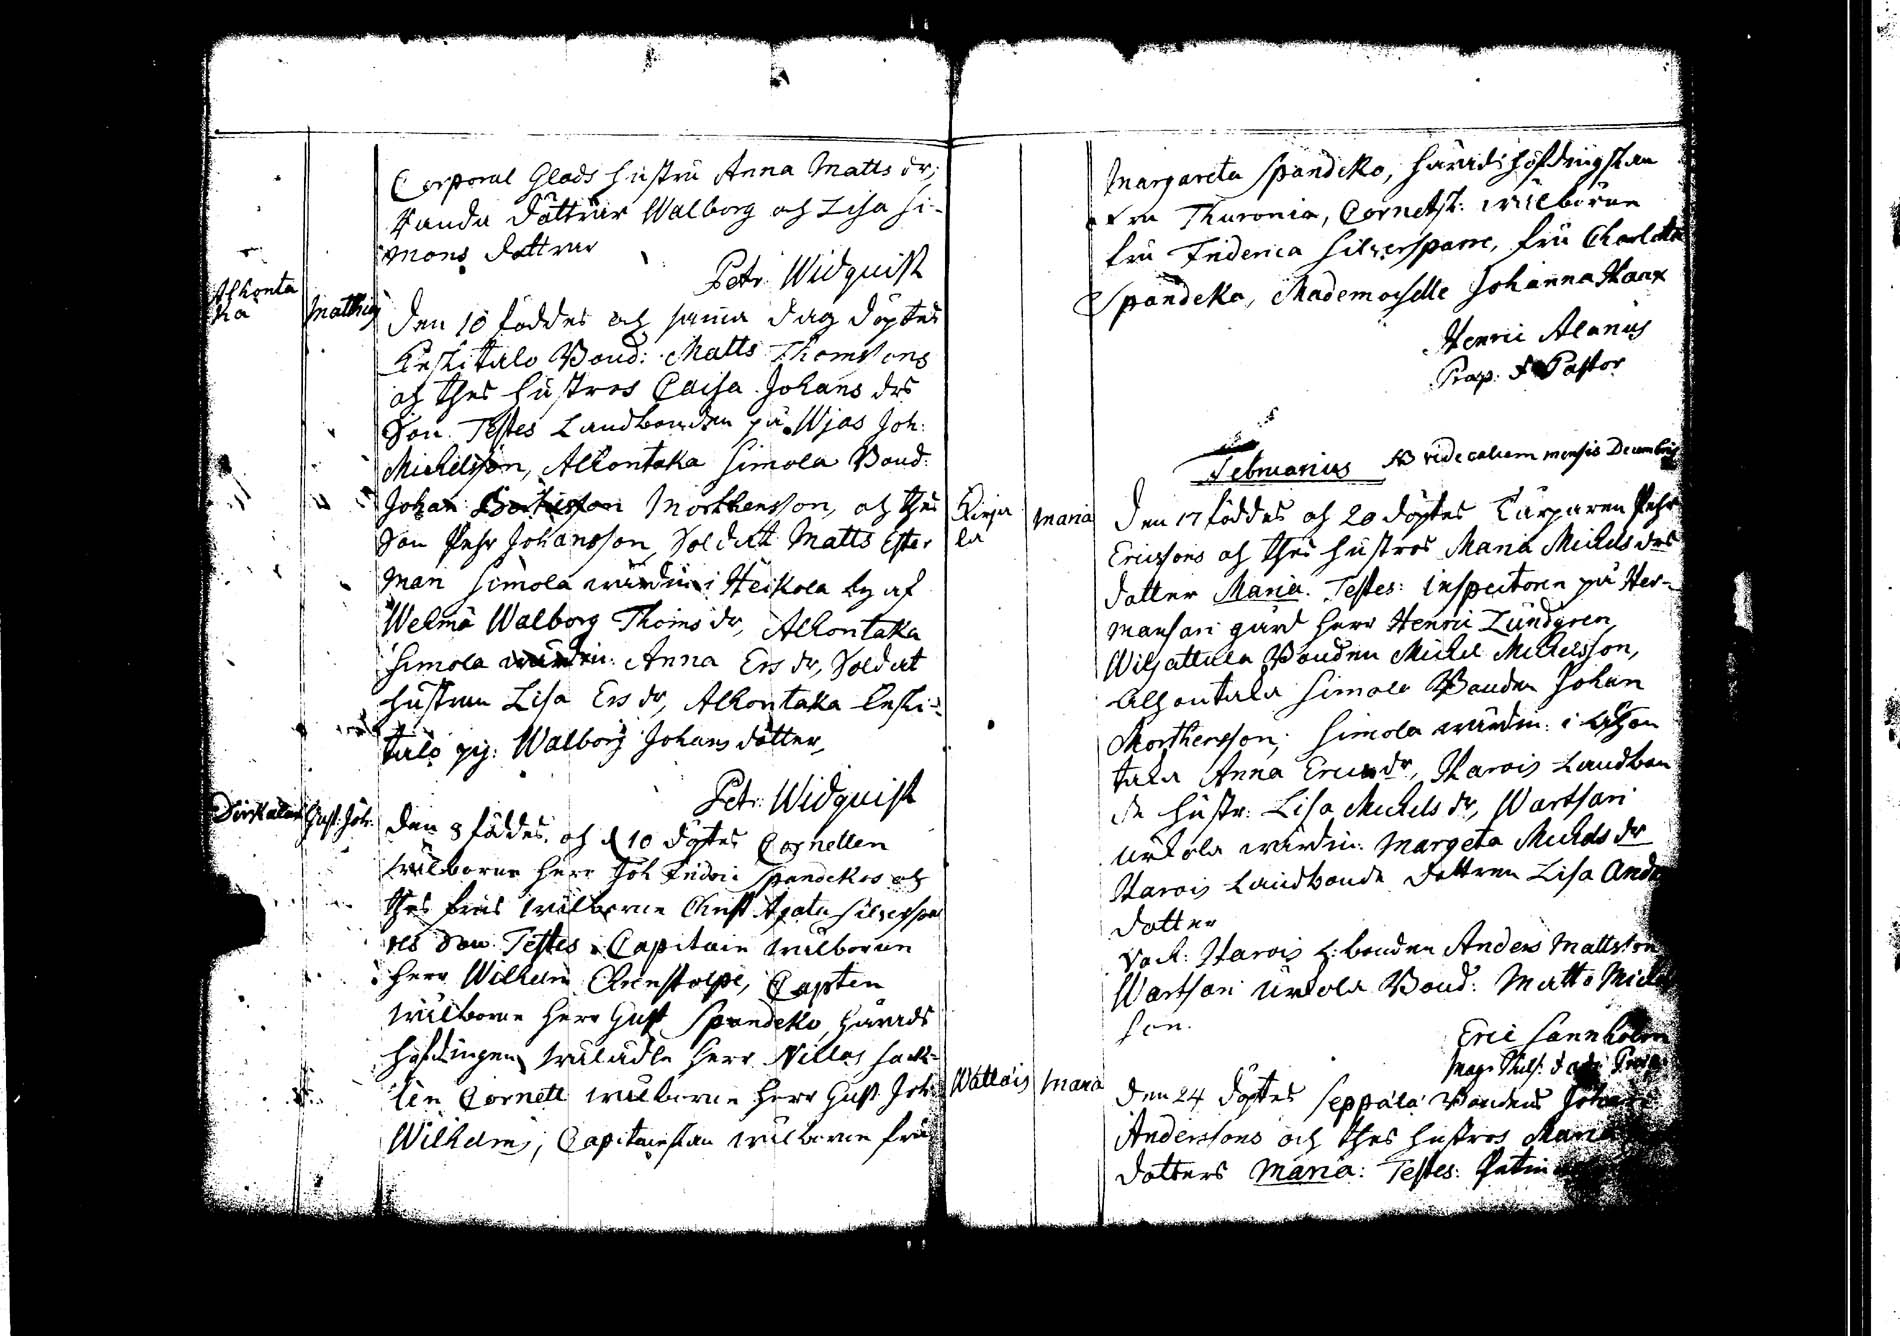 Corporal Glads hustru Anna Matts dr,
Landa döttrar Walborg och Lisa Si-
mons dottrar
Petr. Widquist
Alhonta
ka
Matthias
Den 10 föddes och samma dag döptes
Keskitalo Bond: Matts Thomssons
och thes hustros Caisa Johans drs
Son. Testes Landbonden på Wjas Joh:
Michilsson, Alhontaka Simola Bond:
Johan Morthensson, och thes
Son Pehr Johansson, Soldat Matts Ester
man Simola värdin i Heikola by af
Wehmå Walborg Thoms dr, Alhontaka
Simola värdin: Anna Ers dr, Soldat
hustrun Lisa Ers dr, Alhontaka Keski-
talo pig: Walborg Johans dotter,
Petr. Widquist
Gust: Joh:
Den 8 föddes och d 10 döptes Cornetten
wälborne Herr Joh Fridric Spandekos och
thes frus wälborne Christ Agata Silfverspar
res Son. Testes Capitain wälborne
Herr Wilhelm Ehrenstolpe, Capten
wälborne Herr Gust Spandeko, Härads
höfdingen wäladle Herr Niclas Sack-
lén Cornett wälborne Herr Gust Joh:
Wilhelms, Capitainskan wälborne fru
Margareta Spandeko, Häradshöfdingskan
fru Thuronia, Cornetsk: wälborne
fru Friderica Silfversparre, fru Charlotta
Spandeko, Mademoiselle Johanna Haax
Henric Alanus
Præp: & Pastor
Februarius NB vide calcem mensis Decembris
Kirja
la
Maria
Den 17 föddes och 20 döptes Pehr
Ericssons och thes hustros Maria Michels drs
dotter Maria. Testes: inspectoren på Her-
mansari gård Herr Henric Lundgren,
Wiljattula Bonden Michel Michelsson,
Alhontaka Simola Bonden Johan
Morthensson, Simola värdin: i Alhon
taka Anna Erics dr, Harois Landbon
de hustr: Lisa Michels dr, Wartsari
Urkola värdin: Margeta Michels dr
Harois Landbonde dottren Lisa Anders
dotter
Vack: Harois L:bonden Anders Mattsson
Wartsari Urkola Bond: Matts Michels
son.
Eric Sannholm
Wattois
Maria
Den 24 döptes Seppälä Bondens Johan
Anderssons och thes hustros Maria
dotters Maria: Testes: